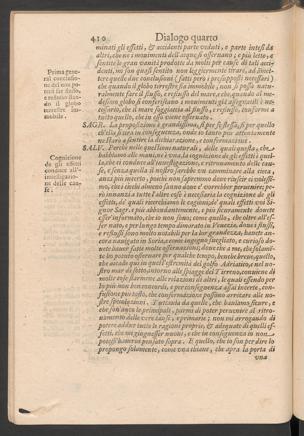 410 Dialogo quarto
minati gli effetti, & accidenti parte veduti, e parte intesi da
altri, che ne i mouimenti dell'acque si osseruano; e più letto, e
sentito le gran vanità prodotte da molti per cause di tali acci-
denti, mi son quasi sentito non leggiermente tirare, ad ammet-
tere queste due conclusioni (fatti però i presupposti necessari)
che quando il globo terrestre sia immobile, non si possa natu-
ralmente fare il flusso, e reflusso del mare; e che, quando al me-
desimo globo si conferiscano i mouimenti già assegnatili, è ne-
cessario, che il mare soggiaccia al flusso, e reflusso, conforme a
tutto quello, che in esso viene osseruato.
SAGR. La proposizione è grandissima, sì per se stessa, sì per quello
ch'ella si tira in conseguenza, onde io tanto più attentamente
ne starò a sentire la dichiarazione, e confermazione.
SALV. Perche nelle questioni naturali, delle quali questa, che
habbiamo alle mani, n'è vna, la cognizione de gli effetti è quel-
la, che ci conduce all'inuestigazione, e ritrouamento delle cau-
se, e senza quella il nostro sarebbe vn camminare alla cieca,
anzi più incerto, poiche non sapremmo doue riuscir ci volessi-
mo, che i ciechi almeno sanno doue e' vorrebber peruenire; pe-
rò innanzi a tutte l'altre cose è necessaria la cognizione de gli
effetti, de' quali ricerchiamo le cagioni; de' quali effetti voi Si-
gnor Sagr. e più abbondantemente, e più sicuramente douete
esser informato, che io non sono; come quello, che oltre all'es-
ser nato, e per lungo tempo dimorato in Venezia, doue i flussi,
e reflussi sono molto notabili per la lor grandezza, hauete an-
cora nauigato in Soria, e come ingegno suegliato, e curioso do-
uete hauer fatte molte osseruazioni; doue che a me, che solamē-
te ho potuto osseruare per qualche tempo, benche breue, quello,
che accade qui in questa estremità del golfo Adriatico, e nel no-
stro mar di sotto, attorno alle spiagge del Tirreno, conuiene di
molte cose starmene alle relazioni di altri, le quali essendo per
lo più non ben concordi, e per conseguenza assai incerte, con-
fusione più tosto, che confermazione possono arrecare alle no-
stre speculazioni. Tuttauia da quelle, che hauiamo sicure, e
che son anco le principali, parmi di poter peruenire al ritro-
uamento delle vere cause, e primarie; non mi arrogando di
potere addur tutte le ragioni proprie, & adequate di quelli ef-
fetti, che mi giugnesser nuoui, e che in conseguenza io non
potessi hauerui pensato sopra. E quello, che io son per dire lo
propongo solamente, come vna chiaue, che apra la porta di
vna
Prima gene-
ral conclusio-
ne del non po-
tersi far flusso,
e reflusso stan-
do il globo
terrestre im-
mobile.
Cognizione
de gli effetti
conduce all'
inuestigazio-
ne delle cau-
se.